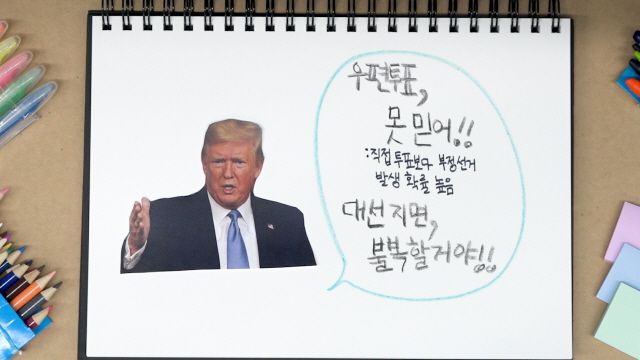 우편투표,
못 믿어!!
:직접 투표보다 부정선거
발생 확률 높음
대선 지면,
불복할거야!!